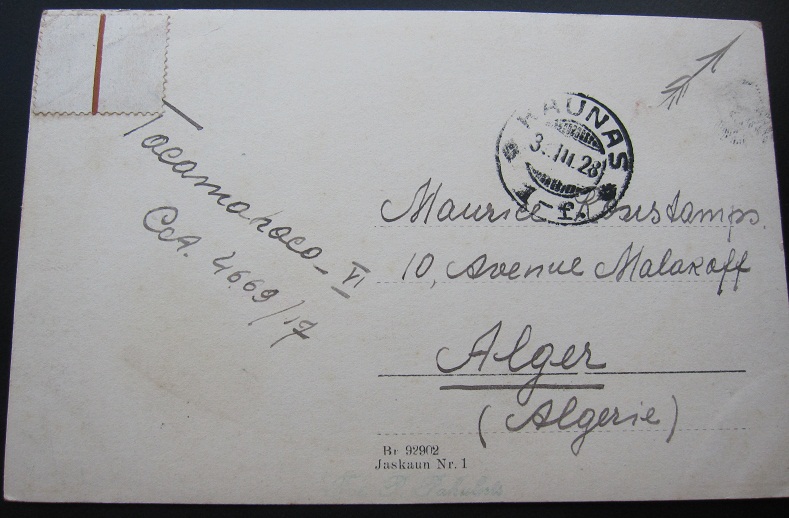 KAUNAS
3.III.28
1-f.
Maurice
10, Avenue Malakoff
Alger
(Algerie)
VI
4669/17
Br 92902
Jaskaun Nr. 1